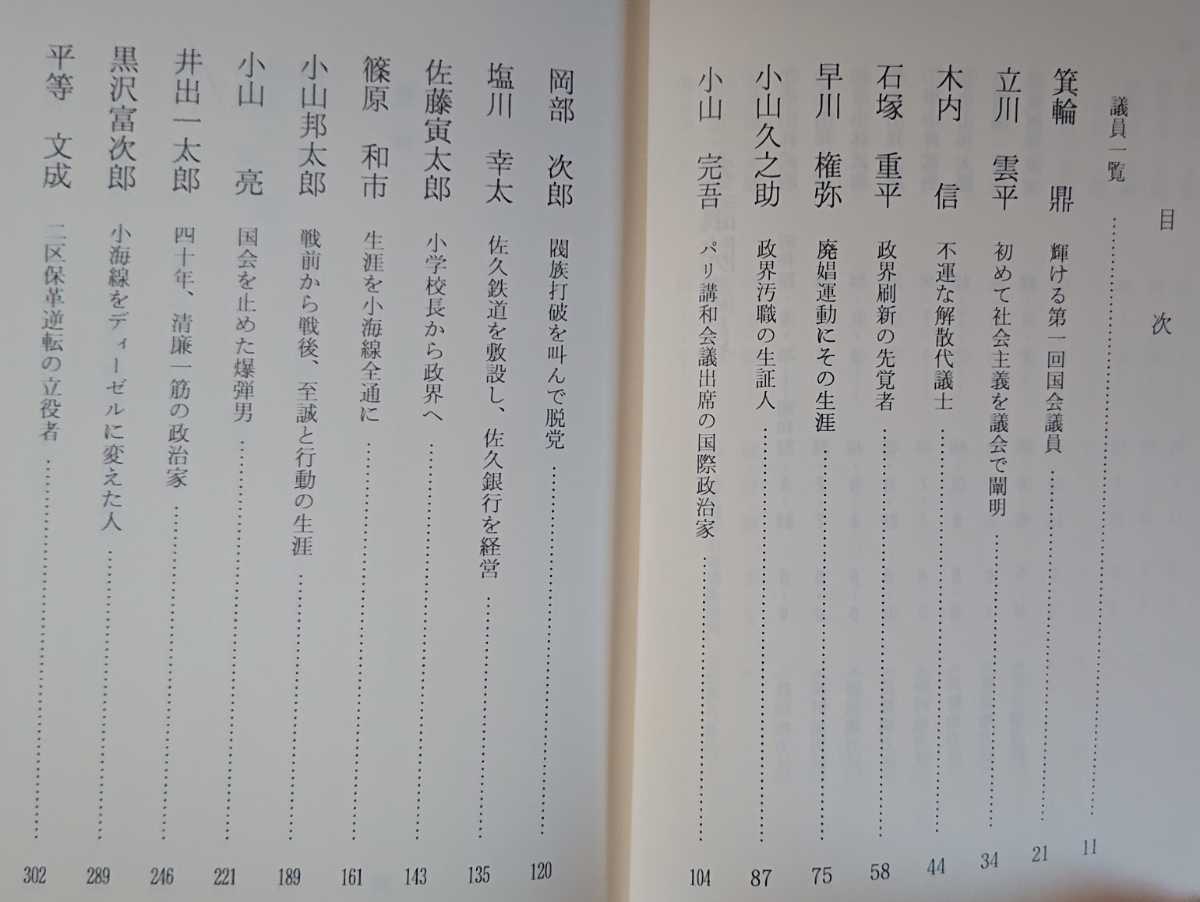 目次
議員一覧 11
箕輪 鼎 輝ける第一回国会議員 21
立川 雲平 初めて社会主義を議会で闡明 34
木内 信 不運な解散代議士 44
石塚 重平 政界刷新の先覚者 58
早川 権弥 廃娼運動にその生涯 75
小山久之助 政界汚職の生証人 87
小山 完吾 パリ講和会議出席の国際政治家 104
岡部 次郎 閥族打破を叫んで脱党 120
塩川 幸太 佐久鉄道を敷設し、佐久銀行を経営 135
佐藤寅太郎 小学校長から政界へ 143
篠原 和市 生涯を小海線全通に 161
小山邦太郎 戦前から戦後、至誠と行動の生涯 189
小山 亮 国会を止めた爆弾男 221
井出一太郎 四十年、清廉一筋の政治家 246
黒沢富次郎 小海線をディーゼルに変えた人 289
平等 文成 二区保革逆転の立役者 302